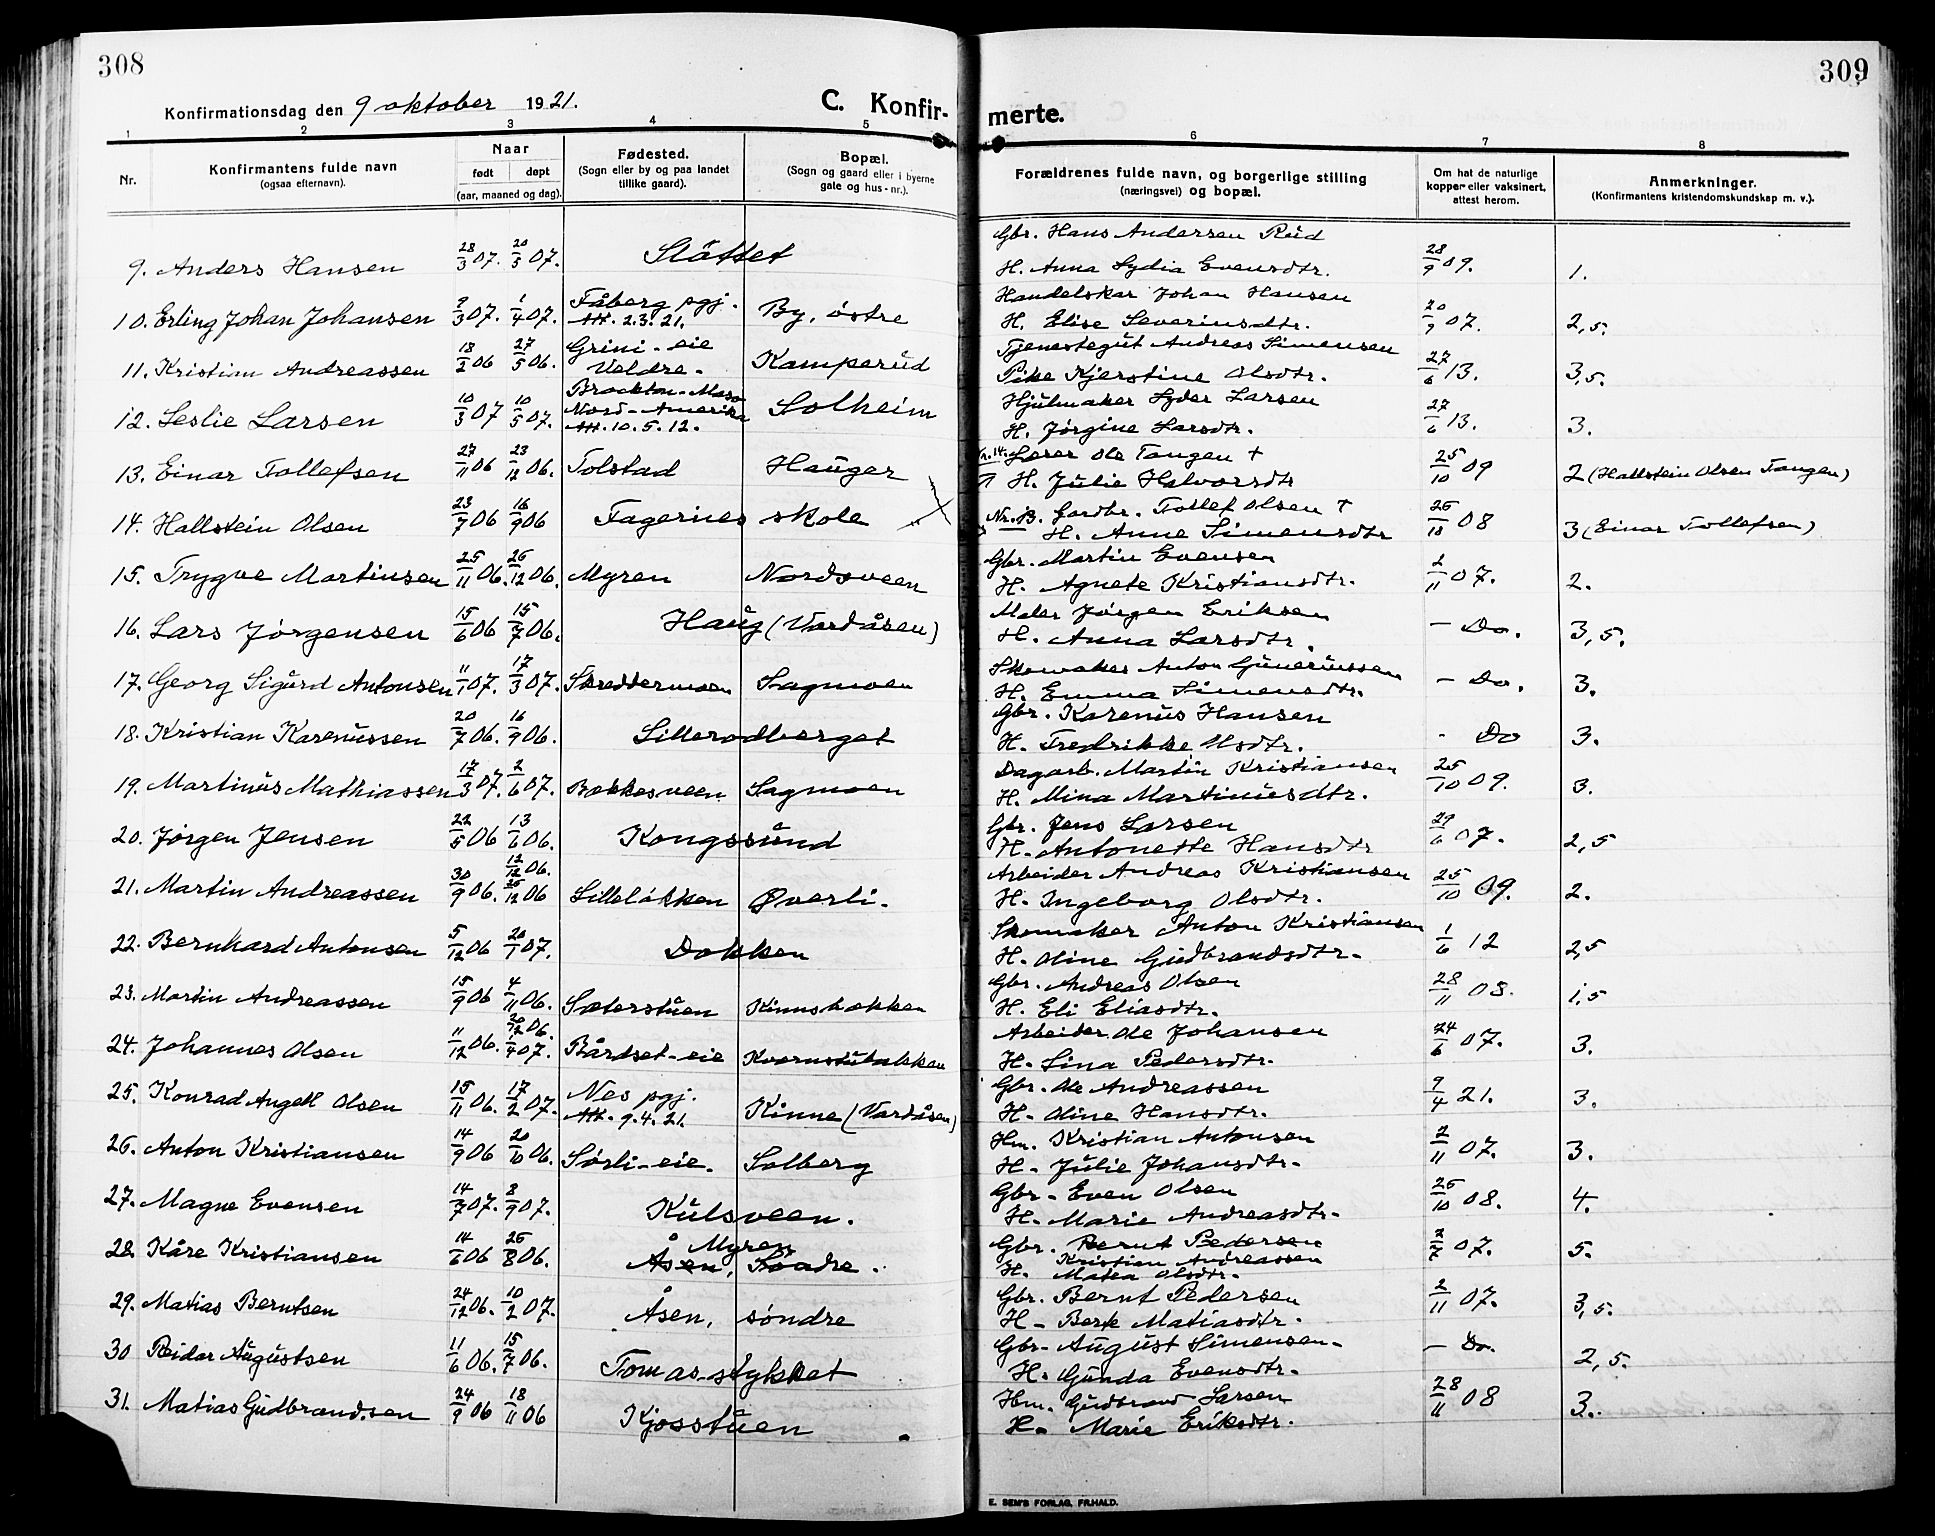 308
Konfirmationsdag den 9 oktober 1921.
C. Konfir-
1 2 3 4 5
Nr.
Konfirmantens fulde navn
(ogsaa efternavn).
Naar
født døpt
(aar, maaned og dag).
Fødested.
(Sogn eller by og paa landet
tillike gaard).
Bopæl.
(Sogn og gaard eller i byerne
gate og hus-nr.).
9. Anders Hansen 28/3 07. 20/5 07. Slåttet
10. Erling Johan Johansen 2/3 07. 1/4 07. Fåberg pgj. Att. 2.3.21. By, østre
11. Kristian Andreassen 18/2 06 27/5 06. Grini-eie Veldre. Kamperud
12. Leslie Larsen 10/3 07 10/5 07. Brockton-Mass Nord-Amerika Att. 10.5.12. Solheim
13. Einar Tollefsen 27/11 06 23/12 06. Tolstad Hauger
14. Hallstein Olsen 23/7 06 16/9 06 Fagernes skole
15. Trygve Martinsen 25/11 06. 26/12 06. Myren Nordsveen
16. Lars Jørgensen 15/6 06 15/7 06. Haug (Vardåsen)
17. Georg Sigurd Antonsen 11/1 07. 17/3 07. Skreddermoen Sagmoen
18. Kristian Karenussen 20/7 06. 16/9 06. Sillerodberget
19. Martinus Mathiassen 17/3 07. 2/6 07. Bakkesveen Sagmoen
20. Jørgen Jensen 22/5 06 13/6 06. Kongssund
21. Martin Andreassen 30/9 06. 12/12 06. 26/12 06 Lilleløkken Øverli.
22. Bernhard Antonsen 5/12 06 20/1 07. Dokken
23. Martin Andreassen 15/9 06 4/11 06. Sæterstuen Kinnsbakken
24. Johannes Olsen 11/12 06. 20/12 06. /4 07. Bårdset-eie Kvernstubakken
25. Konrad Angell Olsen 15/11 06. 17/2 07. Nes pgj. Att. 9.4.21. Kinne (Vardåsen)
26. Anton Kristiansen 14/9 06 20/10 06. Sørli-eie. Solberg
27. Magne Evensen 14/7 07. 8/9 07. Kulsveen.
28. Kåre Kristiansen 14/6 06 26/8 06. Myren
Åsen, søndre.
29. Matias Berntsen 24/12 06. 10/2 07. Åsen, søndre
30 Reidar Augustsen 11/6 06. 15/7 06. Tomas-stykket
31. Matias Gudbrandsen 24/9 06 18/11 06 Kjosstuen
309
merte.
6 7 8
Forældrenes fulde navn, og borgerlige stilling
(næringsvei) og bopæl.
Om hat de naturlige
kopper eller vaksinert,
attest herom.
Anmerkninger.
(Konfirmantens kristendomskundskap m. v.).
Gbr. Hans Andersen Rud
H. Anna Lydia Evensdtr. 28/9 09. 1.
Handelskar Johan Hansen
H. Elise Severinsdtr. 20/9 07. 2,5.
Tjenestegut Andreas Simensen
Pike Kjerstine Olsdtr. 27/6 13. 3,5.
Hjulmaker Syder Larsen
H. Jørgine Larsdtr. 27/6 13. 3.
Nr. 14. Lærer Ole Tangen †
H. Julie Halvorsdtr 25/10 09 2 (Hallstein Olsen Tangen)
Nr. 13. Gardbr. Tollef Olsen †
H. Anne Simensdtr 26/10 08 3 (Einar Tollefsen)
Gbr. Martin Evensen
H. Agnete Kristiansdtr. 2/11 07. 2.
Maler Jørgen Eriksen
H. Anna Larsdtr. - Do. 3,5.
Skomaker Anton Gunerinssen
H. Emma Simensdtr. - Do. 3.
Gbr. Karenus Hansen
H. Fredrikke Olsdtr. - Do 3.
Dagarb. Martin Kristiansen
H. Mina Martinusdtr. 25/10 09. 3.
Gbr. Jens Larsen
H. Antonette Hansdtr 29/6 07. 2,5
Arbeider Andreas Kristiansen
H. Ingeborg Olsdtr. 25/10 09. 2.
Skomaker Anton Kristiansen
H. Oline Gudbrandsdtr. 1/6 12 2,5
Gbr. Andreas Olsen
H. Eli Eliasdtr. 28/11 08. 1,5
Arbeider Ole Johansen
H. Lina Pedersdtr. 24/6 07. 3.
Gbr. Ole Andreassen
H. Oline Hansdtr. 9/4 21. 3.
Hm. Kristian Antonsen
H. Julie Johansdtr. 2/11 07. 3.
Gbr. Even Olsen
H. Marie Andreasdtr. 26/10 08. 4.
Gbr. Bernt Pedersen
Kristian Andreassen
H. Matea Olsdtr. 2/7 07. 5.
Gbr. Bernt Pedersen
H. Berte Matiasdtr. 2/11 07. 3,5.
Gbr. August Simensen.
H. Gunda Evensdtr. - Do. 2,5.
Hm. Gudbrand Larsen
H. Marie Eriksdtr. 28/11 08 3.
E. SEM'S FORLAG, FR.HALD.